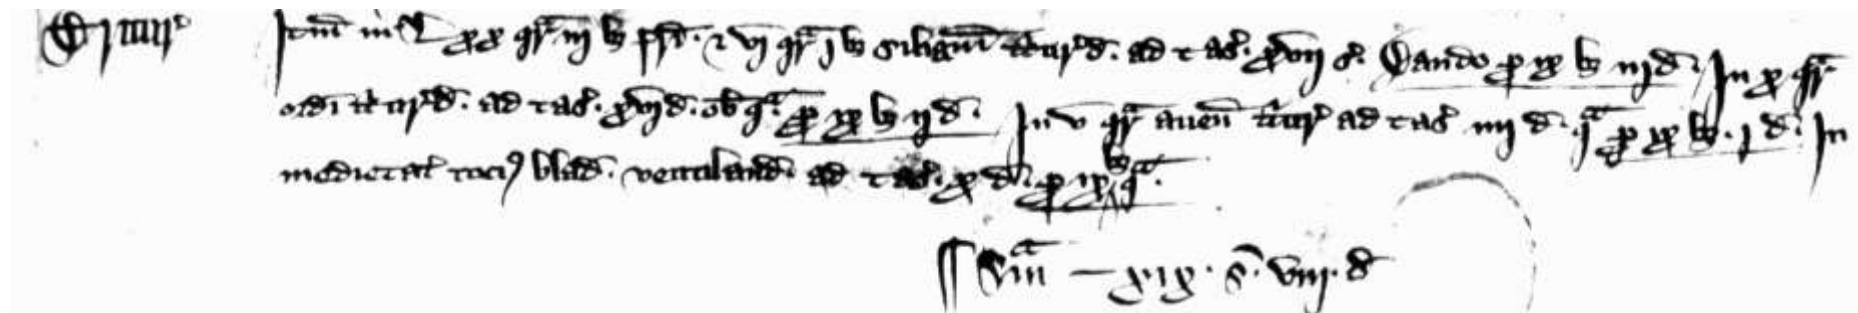 Trit'
Itm in L xx qr iij b frī. & vj qr j b siligin triturd. ad tasč. xviij s. Dando p ix b iijd. In x qr
ordī triturd. ad tasč. xvijd. ob q. p ix b ijd. In v qr aven tritur ad tasč iiij d. q p ix b. j d. In
medietat toci9 blad. ventiland. ad tasč. x d. p ix b q.
Sma — xix. s. viij. d